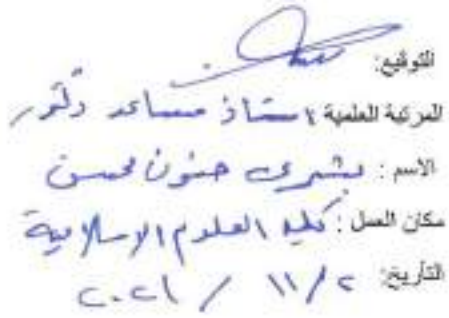 التوقيع:
المرتبة العلمية: استاذ مساعد دكتور
الاسم: بشرى حنون محسن
مكان العمل: كلية العلوم الاسلامية
التأريخ: ٢ / ١١ / ٢٠٢١